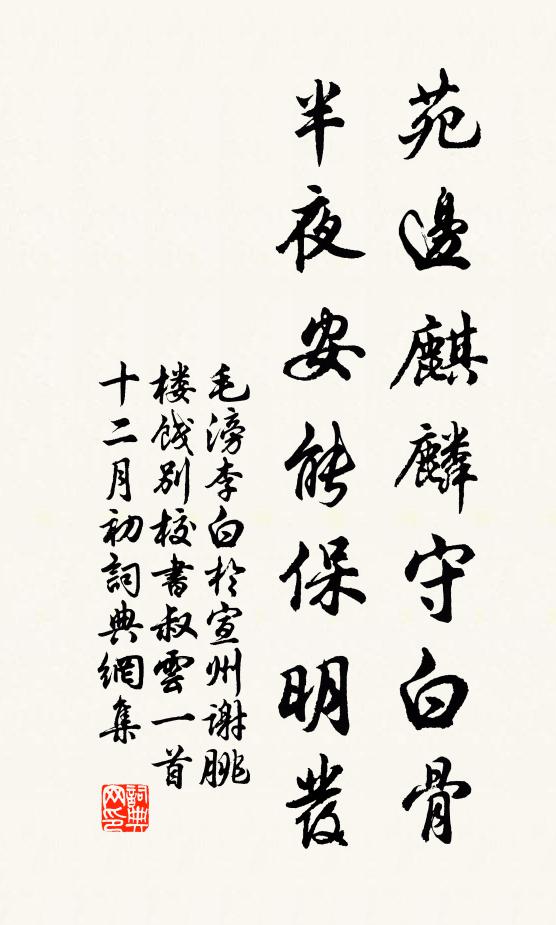 苑邊麒麟守白骨
半夜安能保明發
毛滂李白於宣州謝朓
楼餞別校書叔雲一首
十二月初詞典網集
詞典
网印